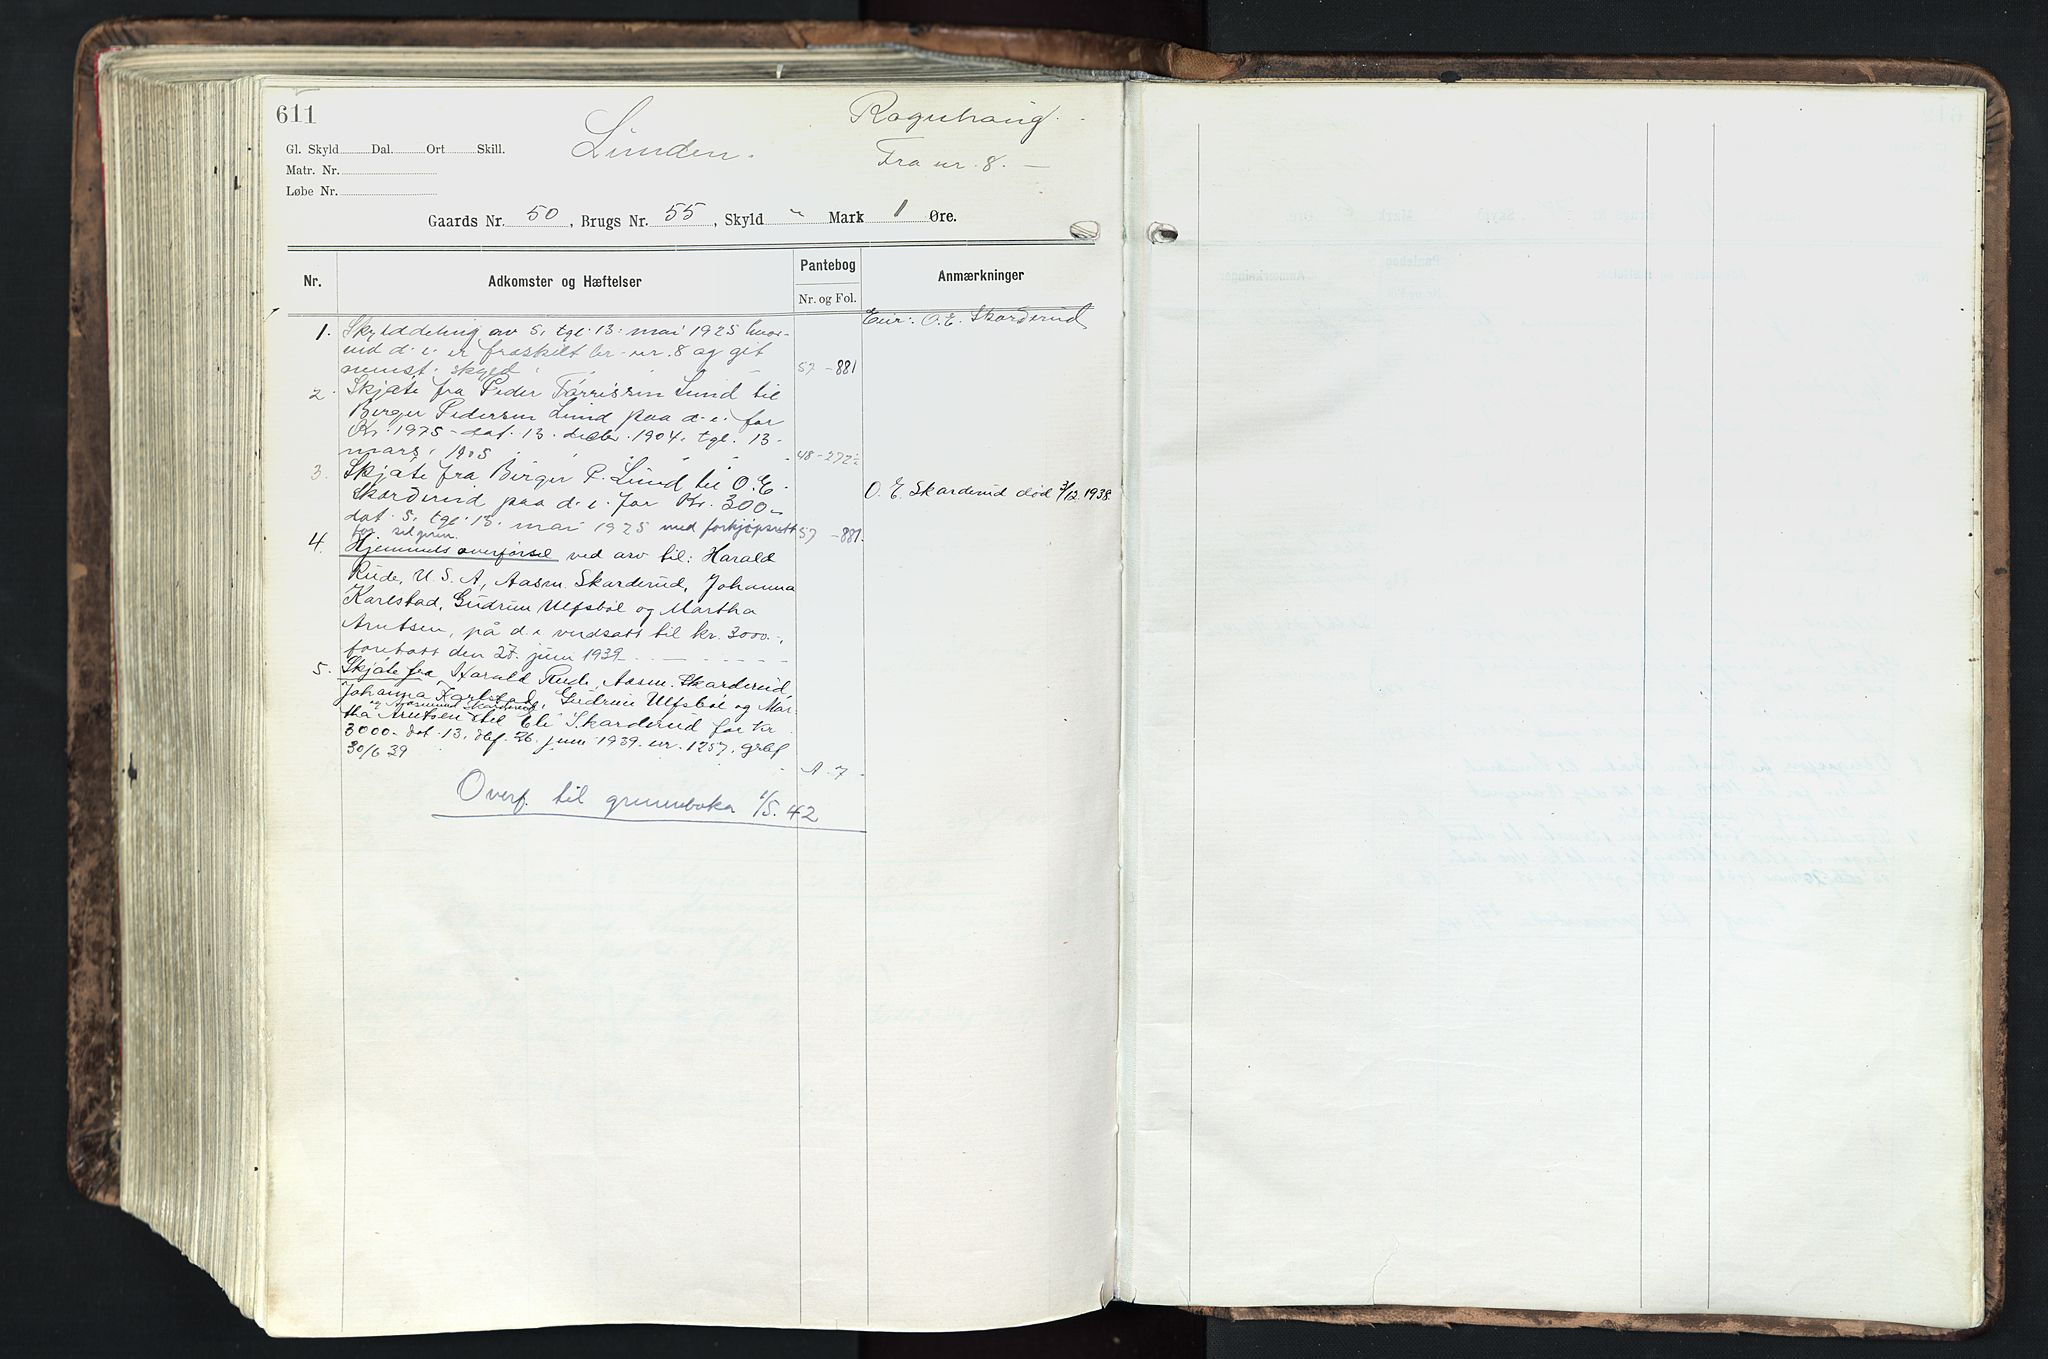 611
Lunden.
Fra nr. 8. —
Gl. Skyld Dal. Ort Skill.
Matr. Nr.
Løbe Nr.
Gaards Nr. 50, Brugs Nr. 55, Skyld " Mark 1 Øre.
Nr. Adkomster og Hæftelser Pantebog Nr. og Fol. Anmærkninger
Eier: O. E. Skarderud
1. Skylddeling av 5. tgl. 13. mai 1925 hvor-
ved d. e. er fraskilt br. nr. 8 og git
minst. skyld 57 - 881
2. Skjøte fra Peder Tørrissen Lund til
Birger Pedersen Lund paa d. e. for
Kr. 1975 - dat. 13. decbr. 1904. tgl. 13.
mars. 1905 48 - 272
3. Skjøte fra Birger P. Lund til O. E.
Skarderud paa d. e. for Kr. 300.-
dat. 5. tgl. 13. mai 1925 med forkjøpsrett 57 - 881.
for selgeren.
O. E. Skarderud død 3/12. 1938.
4. Hjemmelsoverførsel ved arv til: Harald
Rude, U. S. A, Aasm Skarderud, Johanna
Karlstad, Gudrun Ulfsbøl og Martha
Arntsen, på d. e verdsatt til kr. 3000.-,
foretatt den 27. juni 1939
5. Skjøte fra Harald Rude, Aasm. Skarderud,
Johanna Karlstad, Gudrun Ulfsbøl og Mar-
og Aasmund Skarderud
tha Arntsen til Eli Skarderud for kr
3000.- dat. 13. dbf. 26. juni 1939. nr. 1257.
30/6 39 A. 7
Overf. til grunnboka 1/5. 42